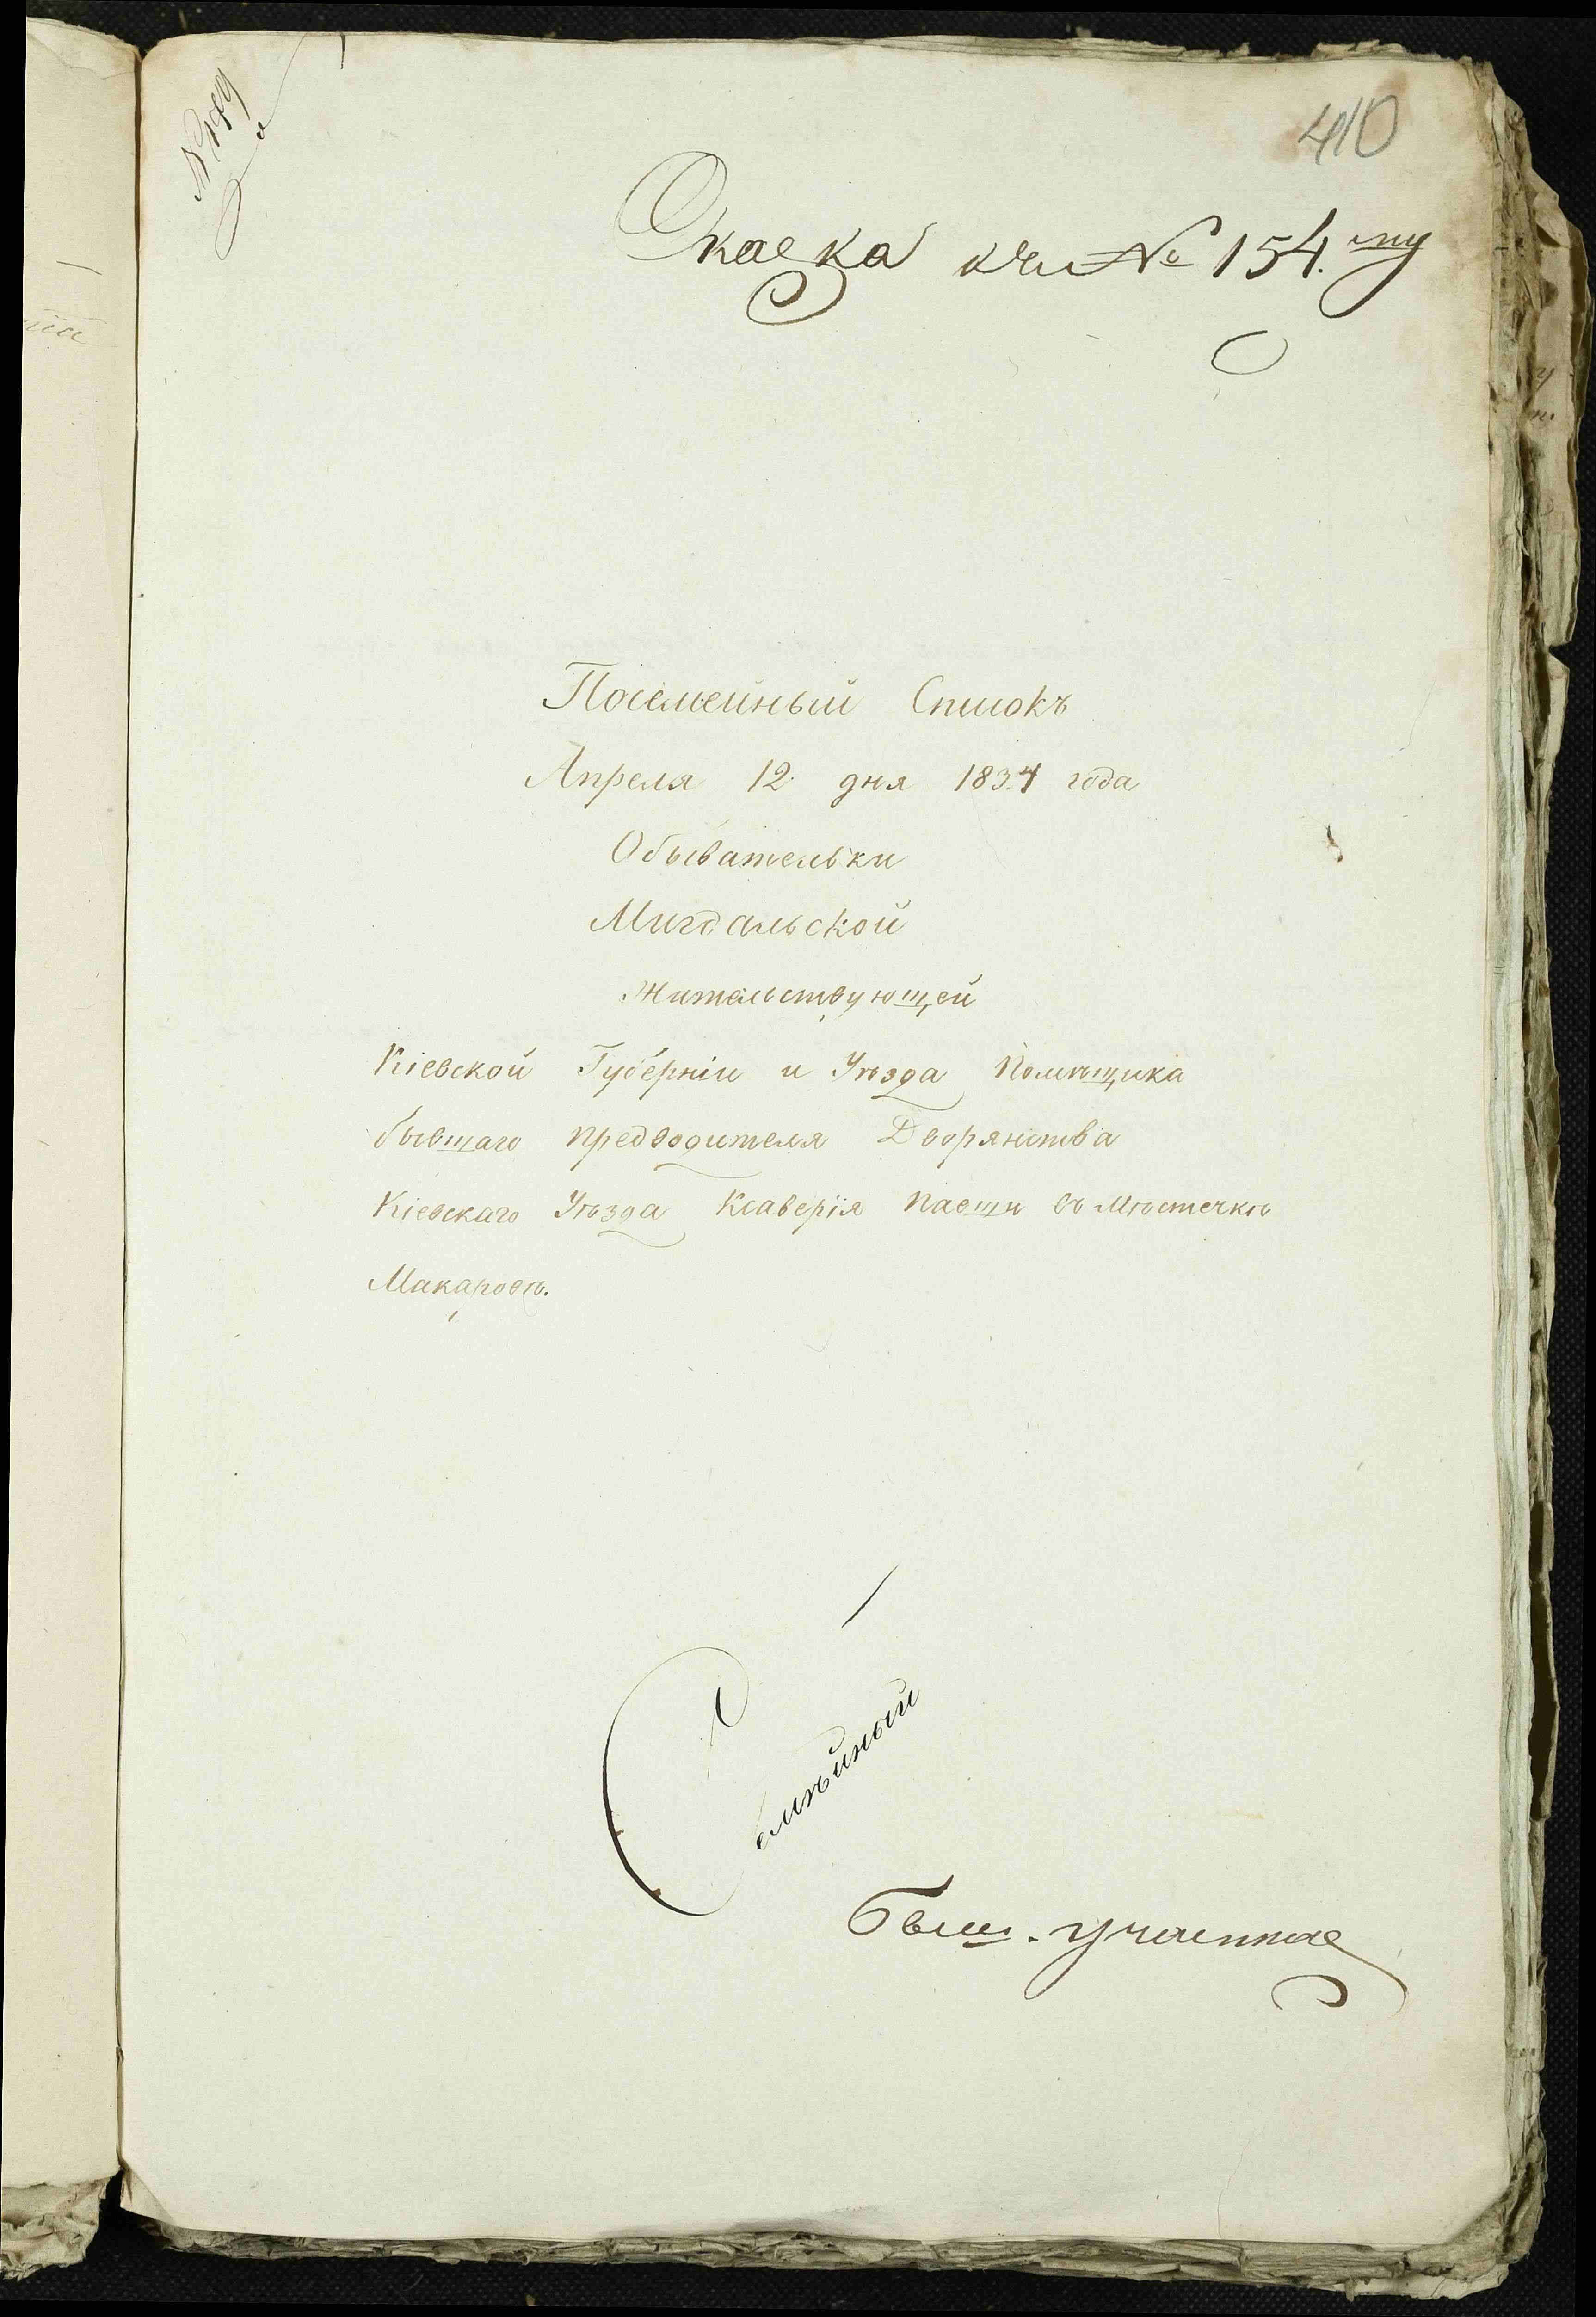 410
Сказка къ № 154.му
Посемейный Списокъ
Апреля 12 дня 1834 года
Обывательки
Мигдальской
жительствующей
Кіевской Губерніи и Уѣзда Помѣщика
бывшаго предводителя Дворянства
Кіевскаго Уѣзда Ксаверія въ Мѣстечкѣ
Макаровѣ.
Семѣйный